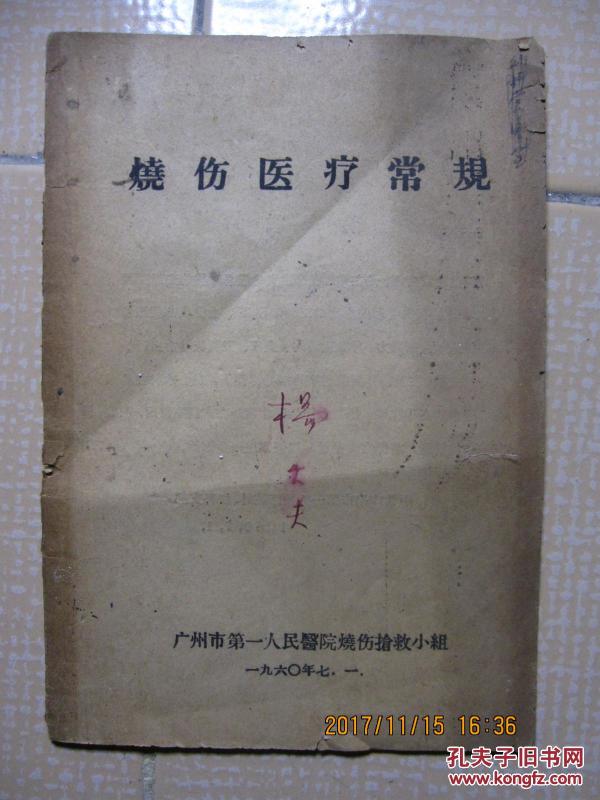 燒伤医疗常規
楊
大夫
广州市第一人民醫院燒伤搶救小組
一九六〇年七.一.
2017/11/15 16:36
孔夫子旧书网
www.kongfz.com